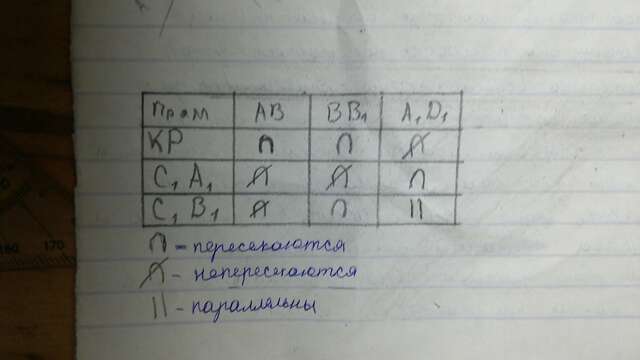 Прям AB BB₁ A₁D₁
KP ∩ ∩ ∩̸
C₁A₁ ∩̸ ∩̸ ∩
C₁B₁ ∩̸ ∩ ||
∩ - пересекаются
∩̸ - непересекаются
|| - параллельны